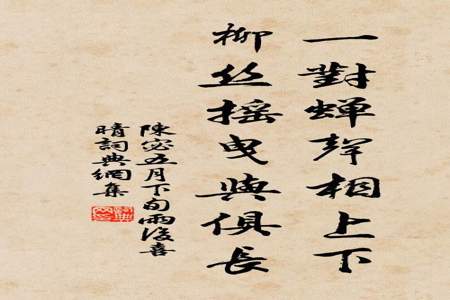 一對蝉聲相上下
柳丝摇曳與俱長
陳宓五月下旬雨後喜
晴詞典網集